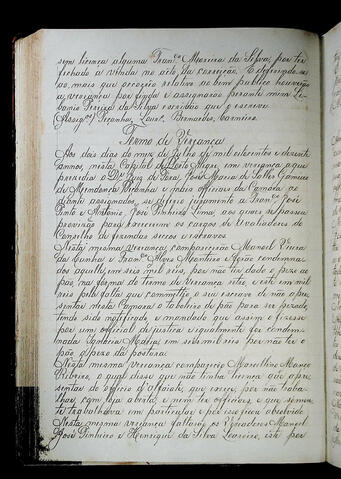 sem licença alguma Franco Moreira da Silva, por ter
fechado a venda no acto da correição. E deferindo-se
ao mais que occorreo relativo ao bem publico houverão
a vereança por finda e assignarão perante mim Li-
borio Pereira da Silva escrivão que o escrevi
(Assigos) Peçanha, Lourço Bernardes Carneiro.
Termo de Vereança
Aos dois dias do mez de Julho de mil oitocentos e
annos, nesta Capital de Porto Alegre, em vereança a que
prezidio o Dor Juiz de Fora, José Maria de Salles Gameiro
de Mendonça Peçanha e mais officiaes da Camara ao
diante assignados, se deferio juramento a Franco José
Pinto e Antonio José Pinheiro Lima, aos quaes se passou
provizão para exercerem os cargos de Avaliadores do
Conselho de fazendas secas e
Nesta mesma vereança comparecerão Manoel Vieira
da Cunha e Franco Alves Monteiro e forão condemna-
dos aquelle em seis mil reis, por não ter dado o pezo ao
pão na forma do Termo de Vereança e este em mil
reis pela falta que commetteo, o seu escravo de não apre-
sentar nesta Camara o taboleiro de pão para ser pezado,
tendo sido notificado, e mandado que assim o fizesse
por um official de justica e igualmente foi condem-
nada Ignacia Maria em seis mil reis por não ter o
pão o pezo da postura.
Nesta mesma vereança compareceo Marcellino Manoel
Ribeiro, o qual disse que não tinha licença que apre-
sentar do officio d'Alfaiate que exerce, por não traba-
lhar com loja aberta, e nem ter officiaes, e que somen-
te trabalhava em particular e por isso ficou absolvido
Nesta mesma vereança faltarão os Vereadores Manoel
José Pinheiro e Henrique da Silva Loureiro, este por